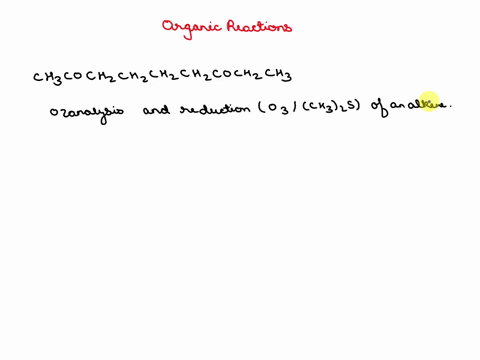 Organic Reactions
CH3COCH2CH2CH2CH2COCH2CH3
Ozanalysis and reduction (O3/(CH3)2S) of an alkene.